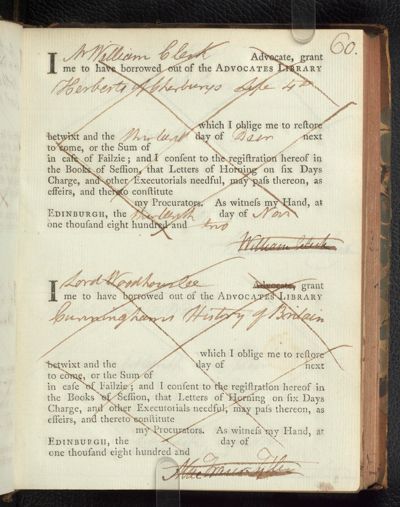 60.
I Mr William Clerk Advocate, grant
me to have borrowed out of the ADVOCATES LIBRARY
Herbert of Cherburys Life 4to
which I oblige me to reſtore
betwixt and the day of Decr next
to come, or the Sum of
in caſe of Failzie; and I conſent to the regiſtration hereof in
the Books of Seſſion, that Letters of Horning on ſix Days
Charge, and other Executorials needful, may paſs thereon, as
effeirs, and thereto conſtitute
my Procurators. As witneſs my Hand, at
EDINBURGH, the day of Novr
one thouſand eight hundred and two
William Clerk
I Lord Woodhouselee Advocate, grant
me to have borrowed out of the ADVOCATES LIBRARY
Cunninghams History of Britain
which I oblige me to reſtore
betwixt and the day of next
to come, or the Sum of
in caſe of Failzie; and I conſent to the regiſtration hereof in
the Books of Seſſion, that Letters of Horning on ſix Days
Charge, and other Executorials needful, may paſs thereon, as
effeirs, and thereto conſtitute
my Procurators. As witneſs my Hand, at
EDINBURGH, the day of
one thouſand eight hundred and